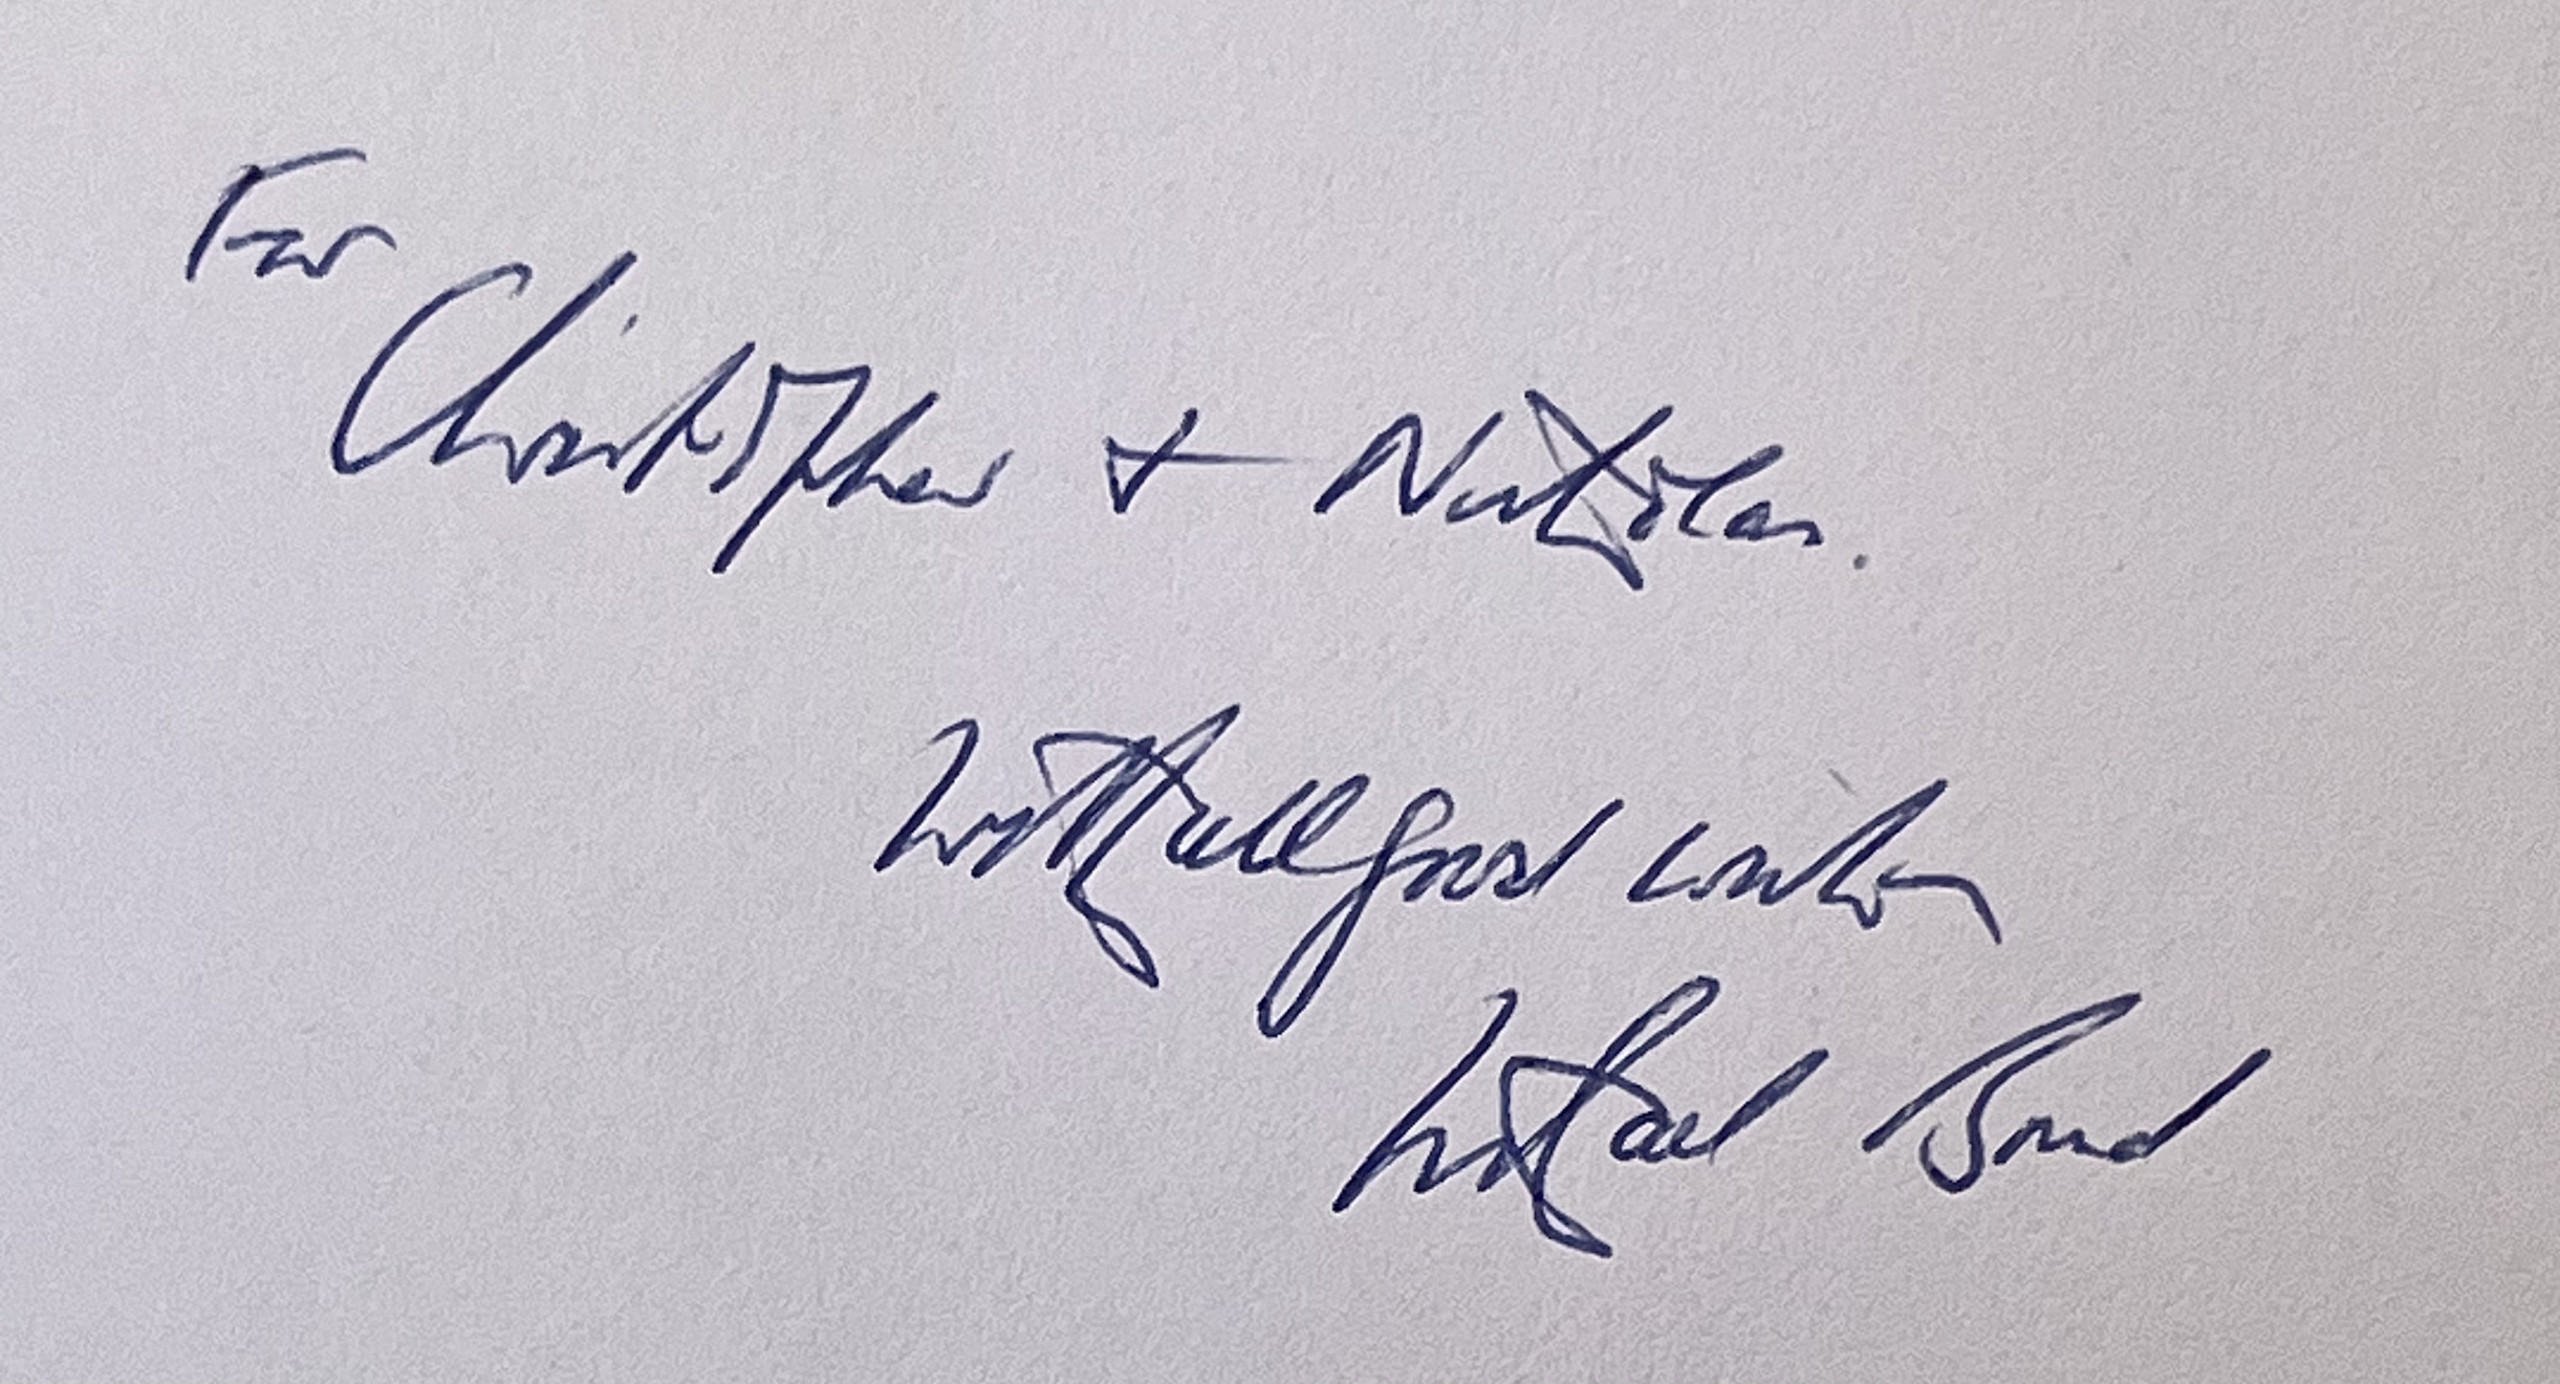 For
Christopher + Nicholas.
With all good wishes
Michael Bond